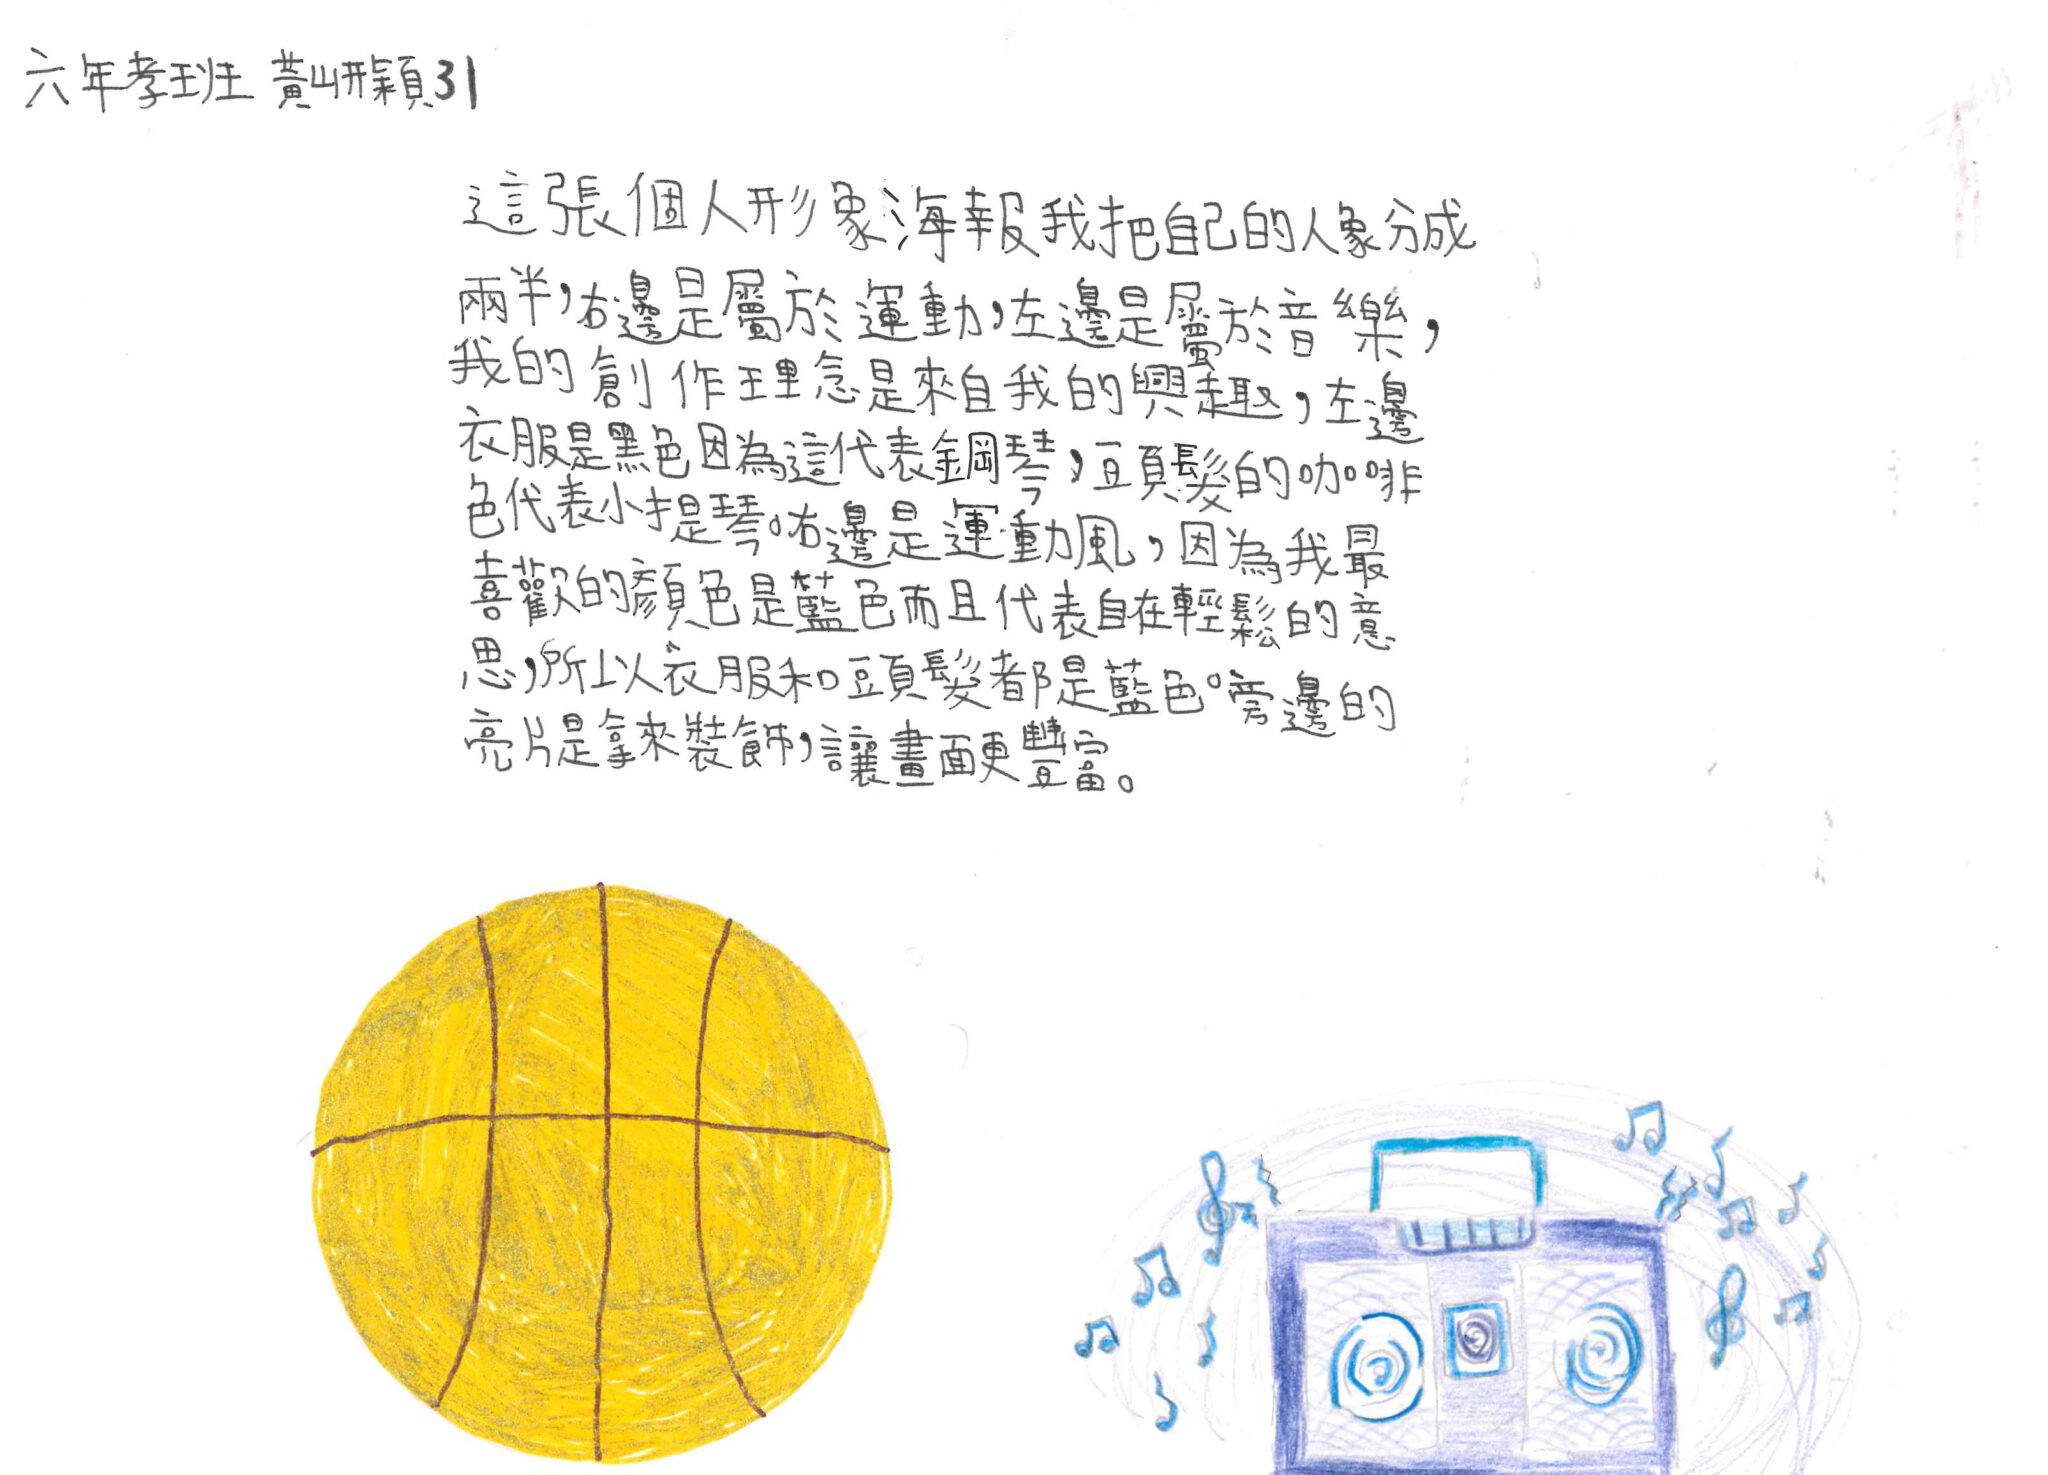 六年孝班 黃岍穎31
這張個人形象海報我把自己的人象分成
兩半,右邊是屬於運動,左邊是屬於音樂,
我的創作理念是來自我的興趣,左邊
衣服是黑色因為這代表鋼琴,頭髮的咖啡
色代表小提琴。右邊是運動風,因為我最
喜歡的顏色是藍色而且代表自在輕鬆的意
思,所以衣服和頭髮都是藍色。旁邊的
亮片是拿來裝飾,讓畫面更豐富。